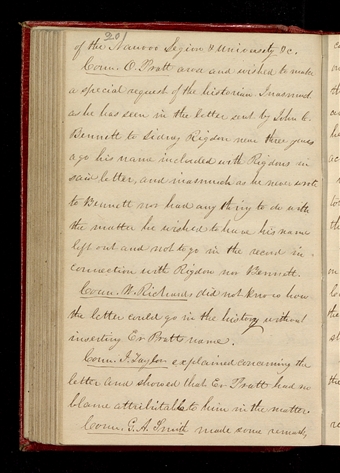 201
of the Nauvoo Legion & University &c.
Coun. O. Pratt arose and wished to make
a special request of the historian Inasmuch
as he has seen in the letter sent by John C.
Bennett to Sidney Rigdon near three years
ago his name included with Rigdons in
said letter, and inasmuch as he never wrote
to Bennett nor had any thing to do with
the matter he wished to have his name
left out and not to go in the record in
connection with Rigdon nor Bennett.
Coun. W. Richards did not know how
the letter could go in the history without
inserting Er Pratts name.
Coun. J. Taylor explained concerning the
letter and showed that Er Pratt had no
blame attributable to him in the matter
Coun. G. A. Smith made some remarks,